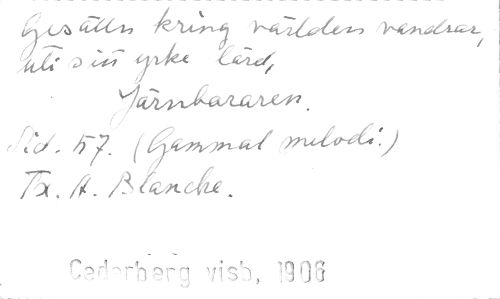 Gesällen kring världen vandrar,
uti sitt yrke lärd,
Järnbararen.
Sid. 57. (Gammal melodi.)
Tx. A. Blanche.
Cederberg visb, 1906